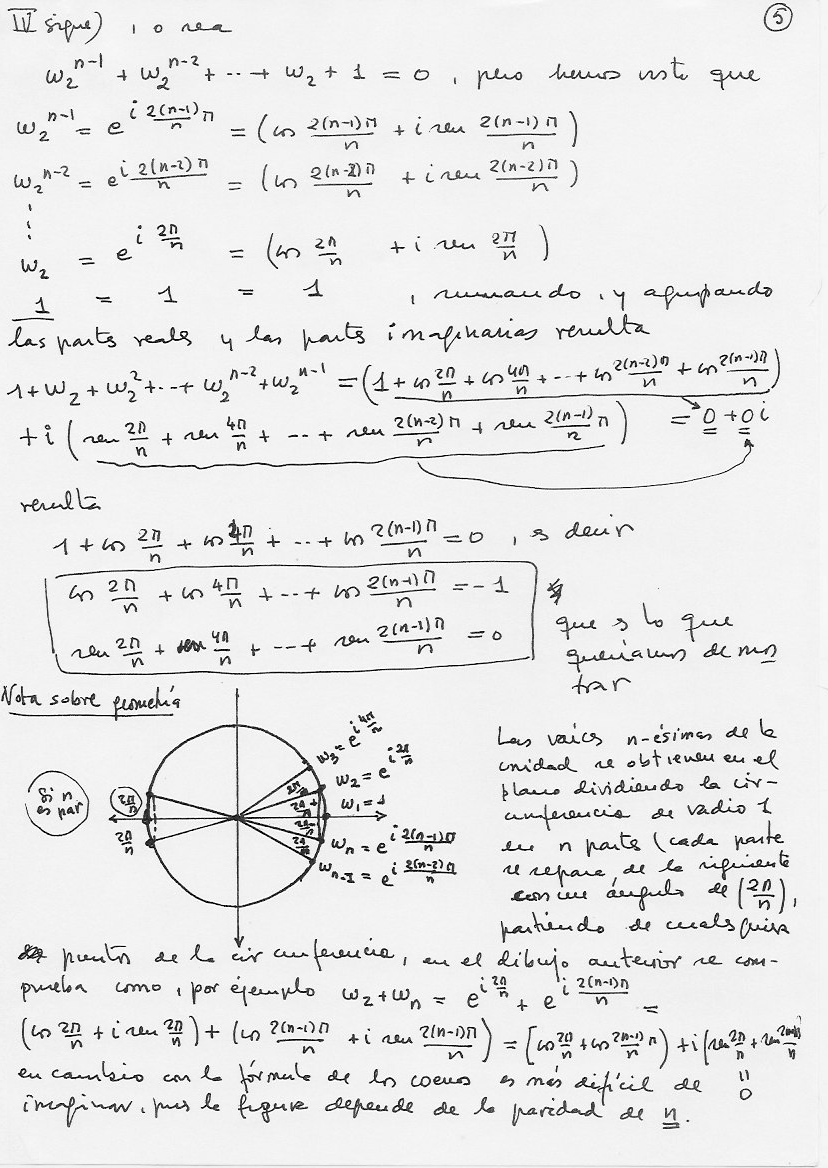 IV sigue) , o sea
⑤
ω₂ⁿ⁻¹ + ω₂ⁿ⁻² + ... + ω₂ + 1 = 0 , pero hemos visto que
ω₂ⁿ⁻¹ = e^{i 2(n-1)π/n} = (cos 2(n-1)π/n + i sen 2(n-1)π/n)
ω₂ⁿ⁻² = e^{i 2(n-2)π/n} = (cos 2(n-2)π/n + i sen 2(n-2)π/n)
⋮
ω₂ = e^{i 2π/n} = (cos 2π/n + i sen 2π/n)
1 = 1 = 1 , sumando, y agrupando
las partes reales y las partes imaginarias resulta
1 + ω₂ + ω₂² + ... + ω₂ⁿ⁻² + ω₂ⁿ⁻¹ = (1 + cos 2π/n + cos 4π/n + ... + cos 2(n-2)π/n + cos 2(n-1)π/n)
+ i (sen 2π/n + sen 4π/n + ... + sen 2(n-2)π/n + sen 2(n-1)/n π) = 0 + 0i
resulta
1 + cos 2π/n + cos 4π/n + ... + cos 2(n-1)π/n = 0 , es decir
cos 2π/n + cos 4π/n + ... + cos 2(n-1)π/n = -1
sen 2π/n + sen 4π/n + ... + sen 2(n-1)π/n = 0
que es lo que
queríamos demos
trar
Nota sobre geometría
Si n
es par
2π/n
2π/n
ω₃ = e^{i 4π/n}
ω₂ = e^{i 2π/n}
ω₁ = 1
ωₙ = e^{i 2(n-1)π/n}
ωₙ₋₁ = e^{i 2(n-2)π/n}
2π/n
2π/n
2π/n
2π/n
Las raíces n-ésimas de la
unidad se obtienen en el
plano dividiendo la cir-
cunferencia de radio 1
en n partes (cada parte
se separa de la siguiente
con un ángulo de (2π/n),
partiendo de cualesquiera
puntos de la circunferencia, en el dibujo anterior se com-
prueba como, por ejemplo ω₂ + ωₙ = e^{i 2π/n} + e^{i 2(n-1)π/n} =
(cos 2π/n + i sen 2π/n) + (cos 2(n-1)π/n + i sen 2(n-1)π/n) = [cos 2π/n + cos 2(n-1)/n π] + i [sen 2π/n + sen 2(n-1)π/n]
en cambio con la fórmula de los cosenos es más difícil de
"
0
imaginar, pues la figura depende de la paridad de n.